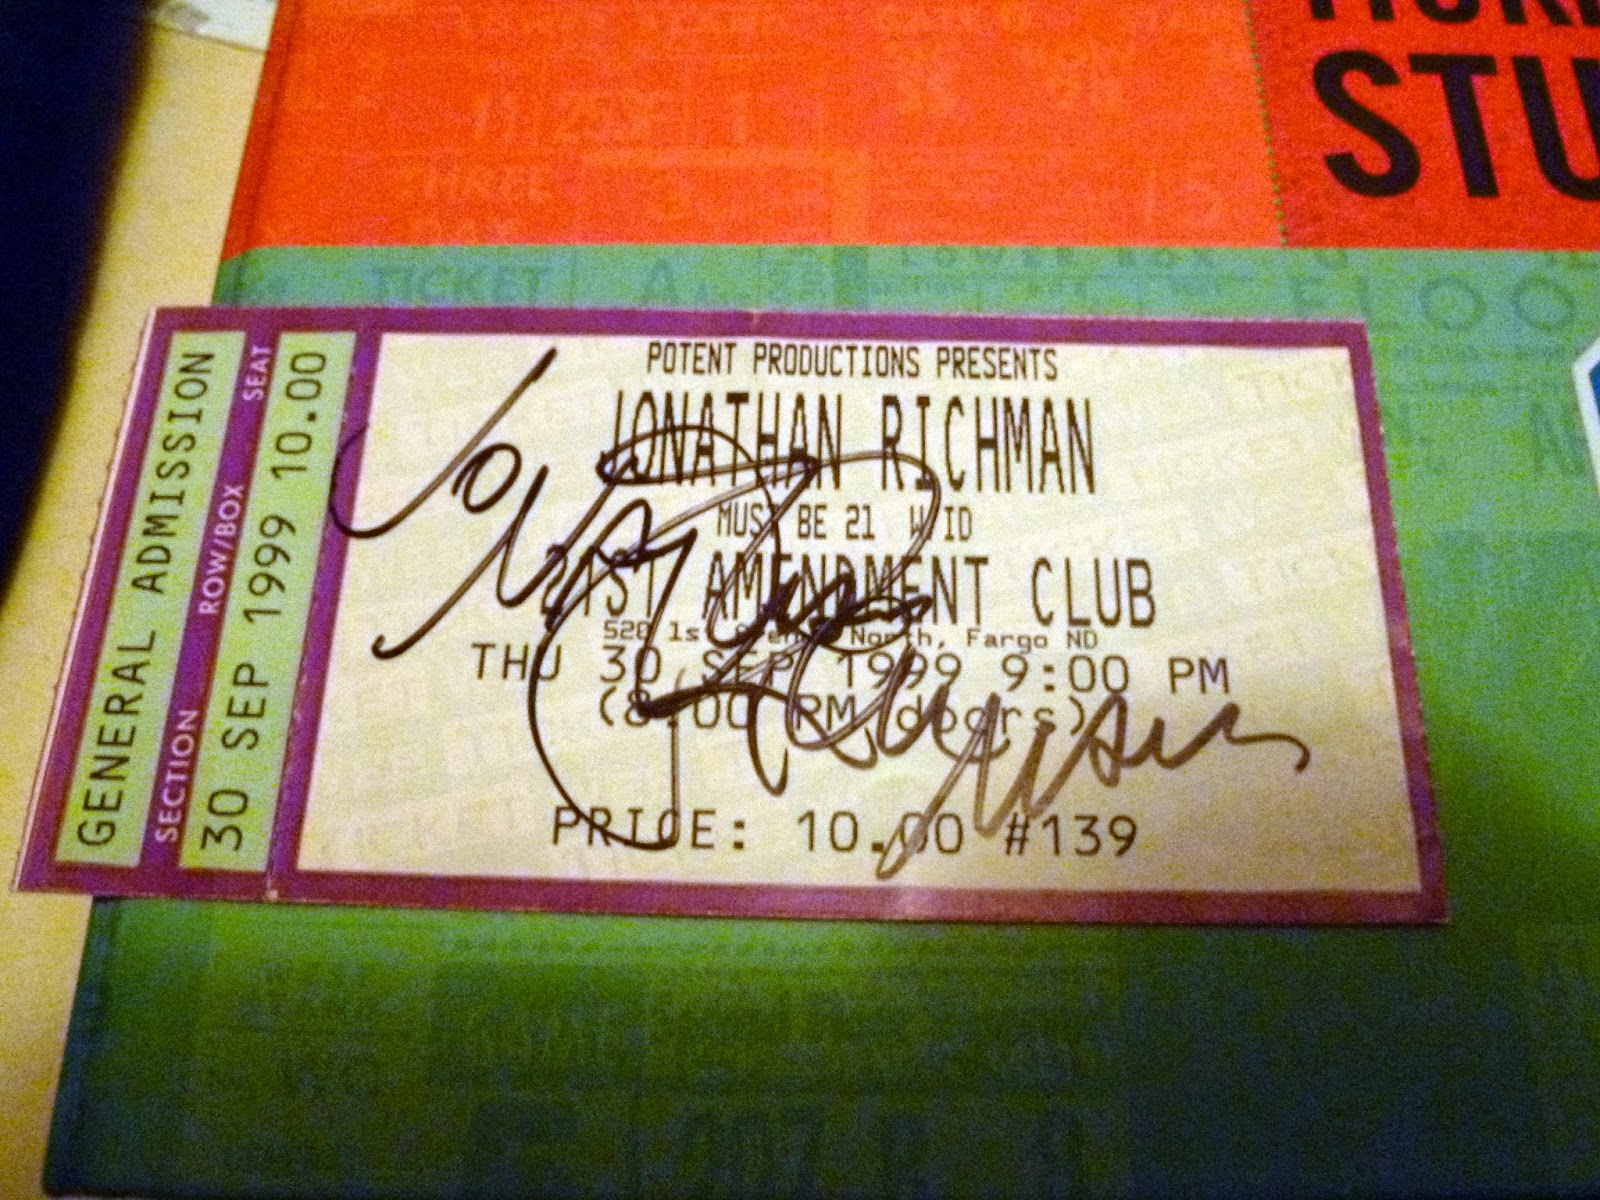 STU
TICKET
LOWER BOX
FLOO
GENERAL ADMISSION
SECTION ROW/BOX SEAT
30 SEP 1999 10.00
POTENT PRODUCTIONS PRESENTS
JONATHAN RICHMAN
MUST BE 21 W/ID
21ST AMENDMENT CLUB
520 1st Avenue North, Fargo ND
THU 30 SEP 1999 9:00 PM
(8:00 PM doors)
PRICE: 10.00 #139
Jonathan Richman